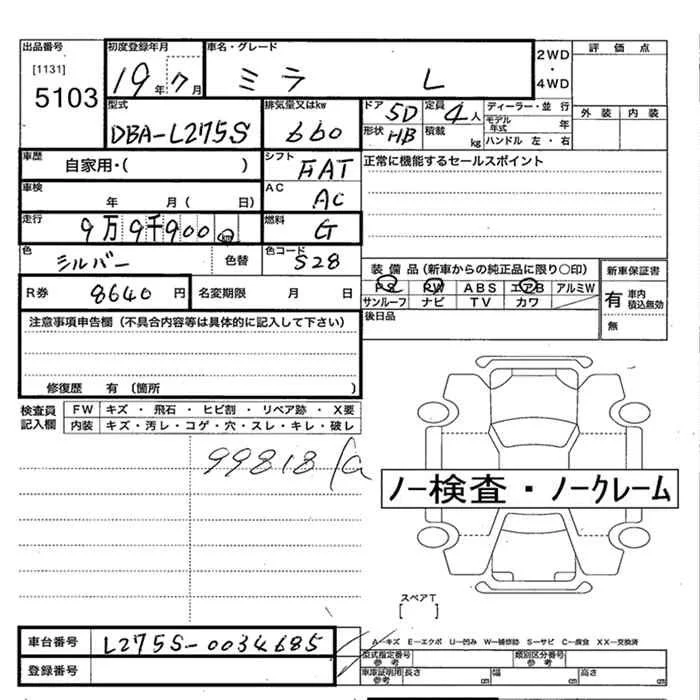 出品番号 初度登録年月 車名・グレード 2WD・4WD 評価点
[1131]
5103 19年7月 ミラ L
外装 内装
型式 排気量又はkw ドア 5D 定員 4人 ディーラー・並行
DBA-L275S 660 形状 HB 積載 kg モデル年式 年
ハンドル 左・右
車歴 自家用・( ) シフト FAT 正常に機能するセールスポイント
車検 年 月( 日) AC AC
走行 9万9千900 km 燃料 G
色 シルバー 色替 色コード S28
装備品(新車からの純正品に限り○印) 新車保証書
R券 8640円 名変期限 月 日 PS PW ABS エアB アルミW 有 車内積込無効
サンルーフ ナビ TV カワ 無
注意事項申告欄(不具合内容等は具体的に記入して下さい) 後日品
修復歴 有(箇所 )
検査員記入欄 FW キズ・飛石・ヒビ割・リペア跡・X要
内装 キズ・汚レ・コゲ・穴・スレ・キレ・破レ
99818
ノー検査・ノークレーム
スペアT
[ ]
車台番号 L275S-0034685 A-キズ E-エクボ U-凹み W-補修跡 S-サビ C-腐食 XX-交換済
型式指定番号 参考 類別区分番号 参考
登録番号 車庫証明用 参考 長さ cm 幅 cm 高さ cm